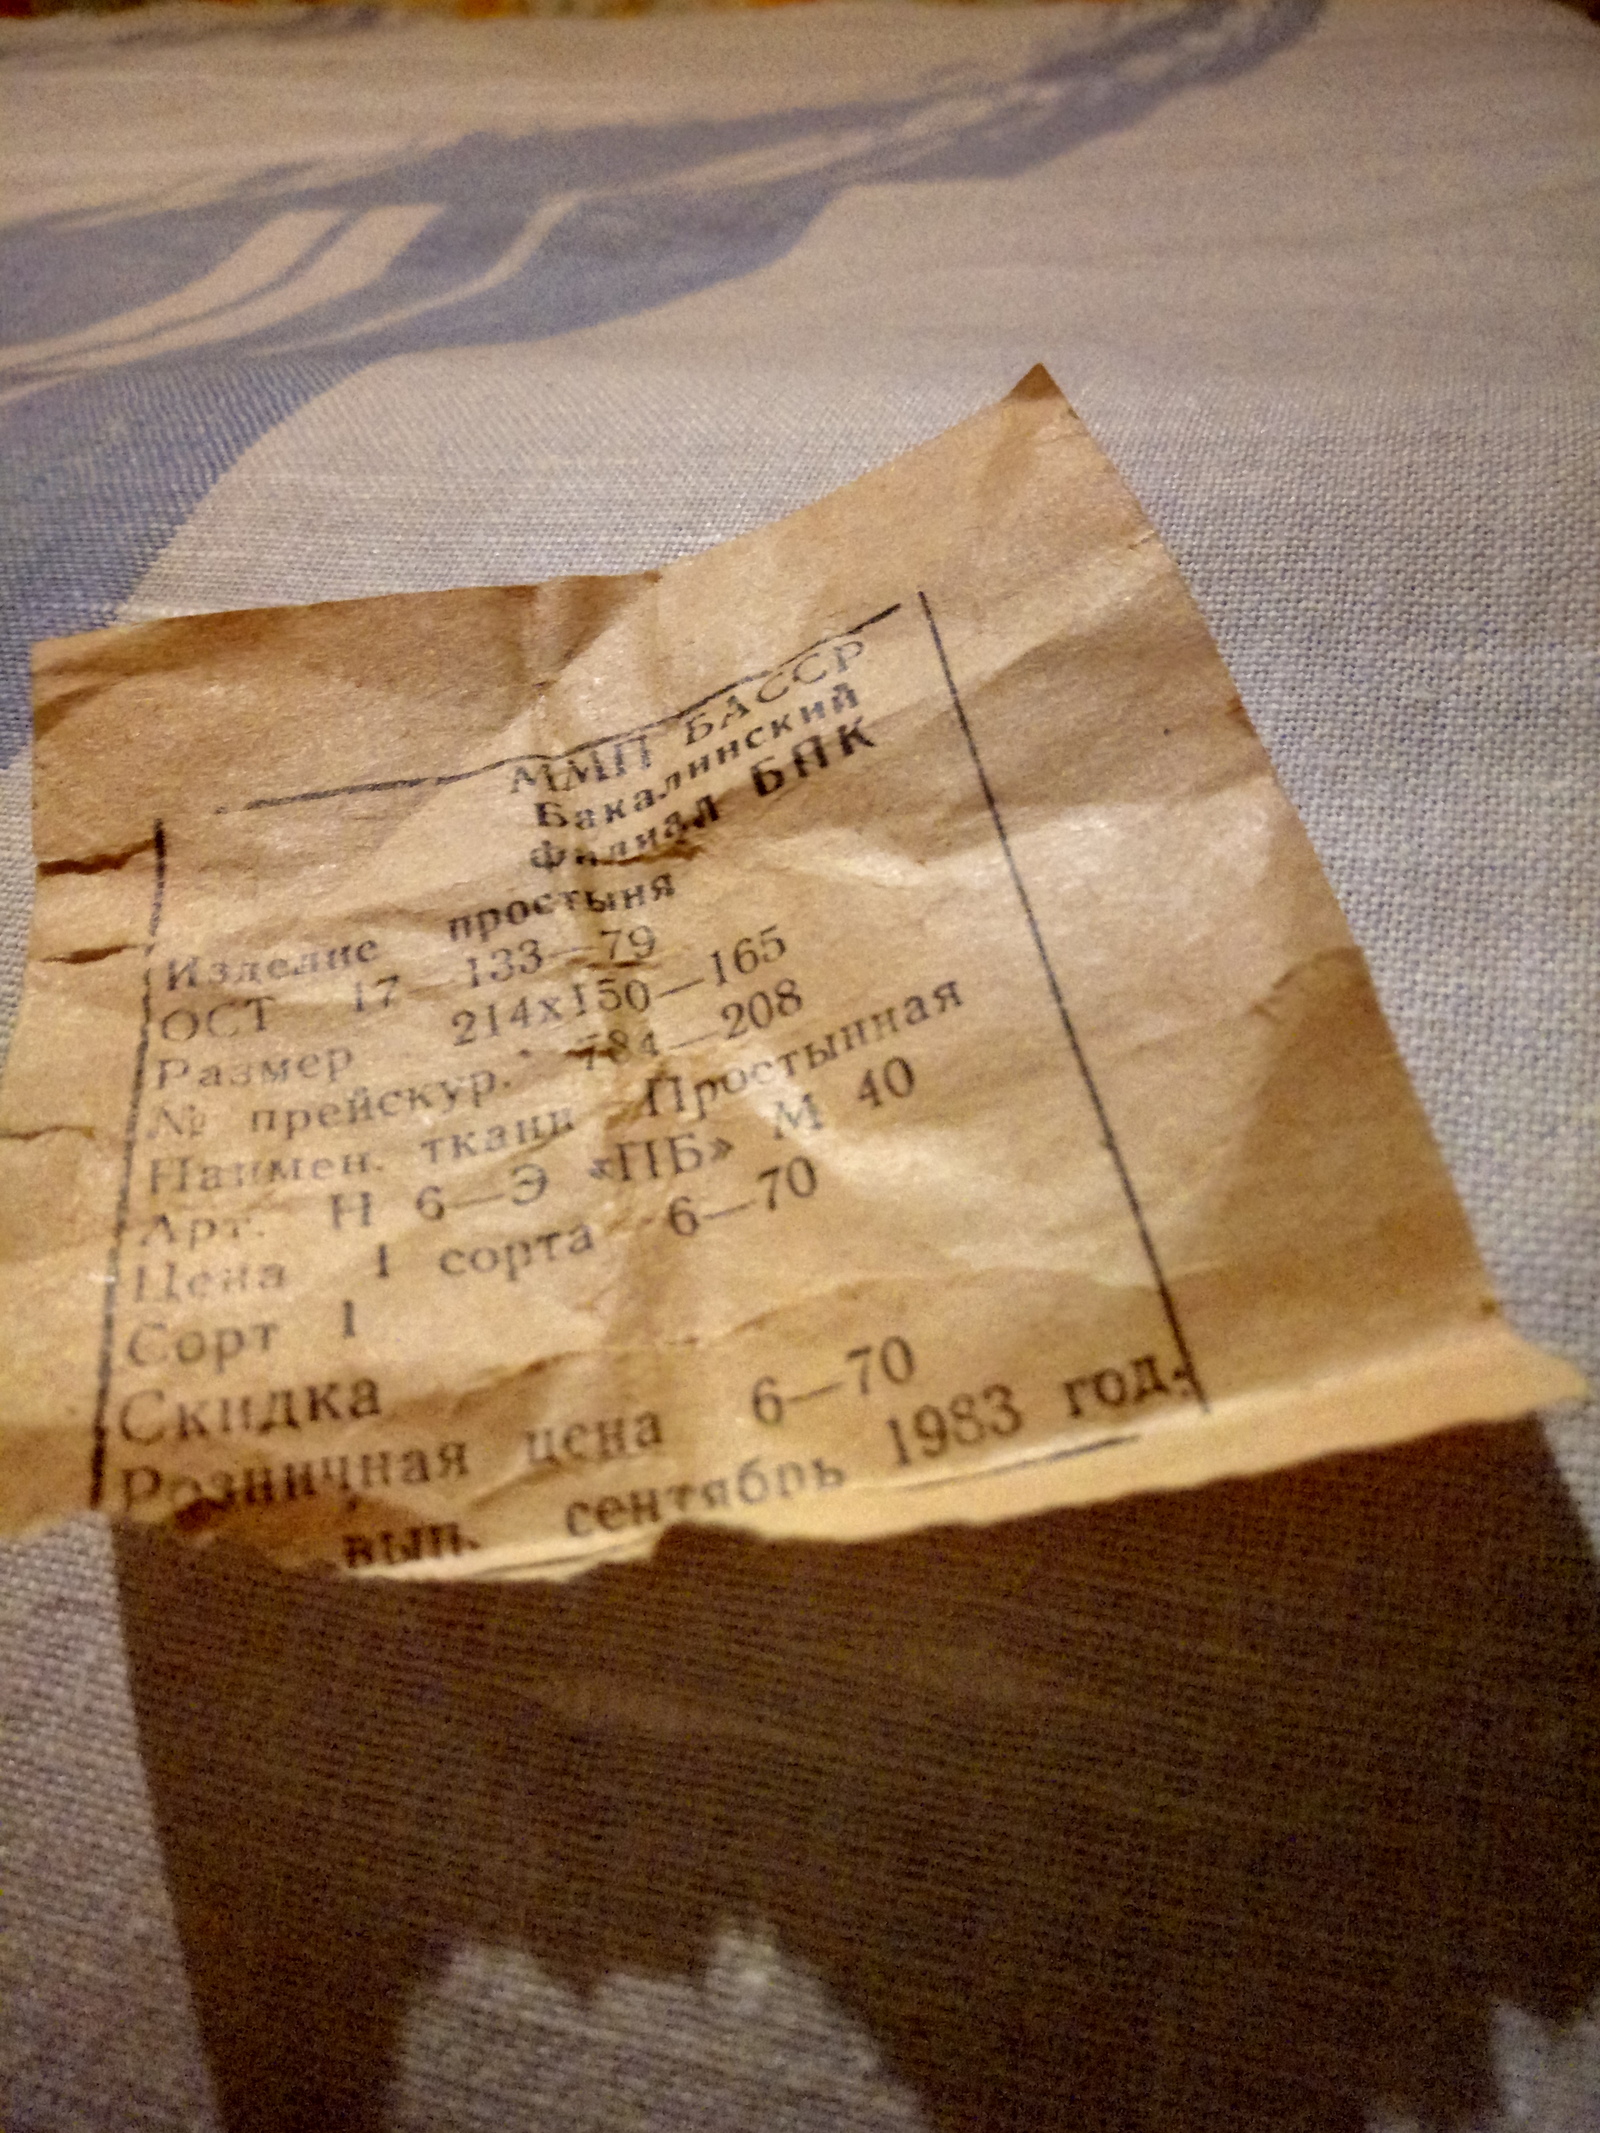 ММП БАССР
Бакалинский
филиал БПК
Изделие простыня
ОСТ 17—133—79
Размер 214х150—165
№ прейскур. 784—208
Наимен. ткани Простынная
Арт. Н 6—Э «ПБ» М 40
Цена 1 сорта 6—70
Сорт 1
Скидка
Розничная цена 6—70
вып. сентябрь 1983 год.